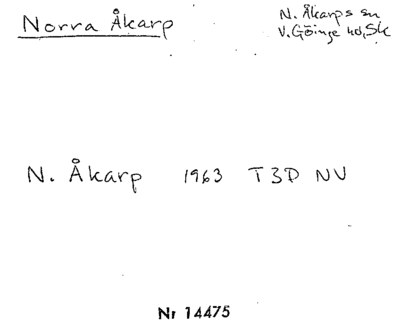 Norra Åkarp
N. Åkarps sn
V. Göinge hd, Sk
N. Åkarp 1963 T3D NV
Nr 14475